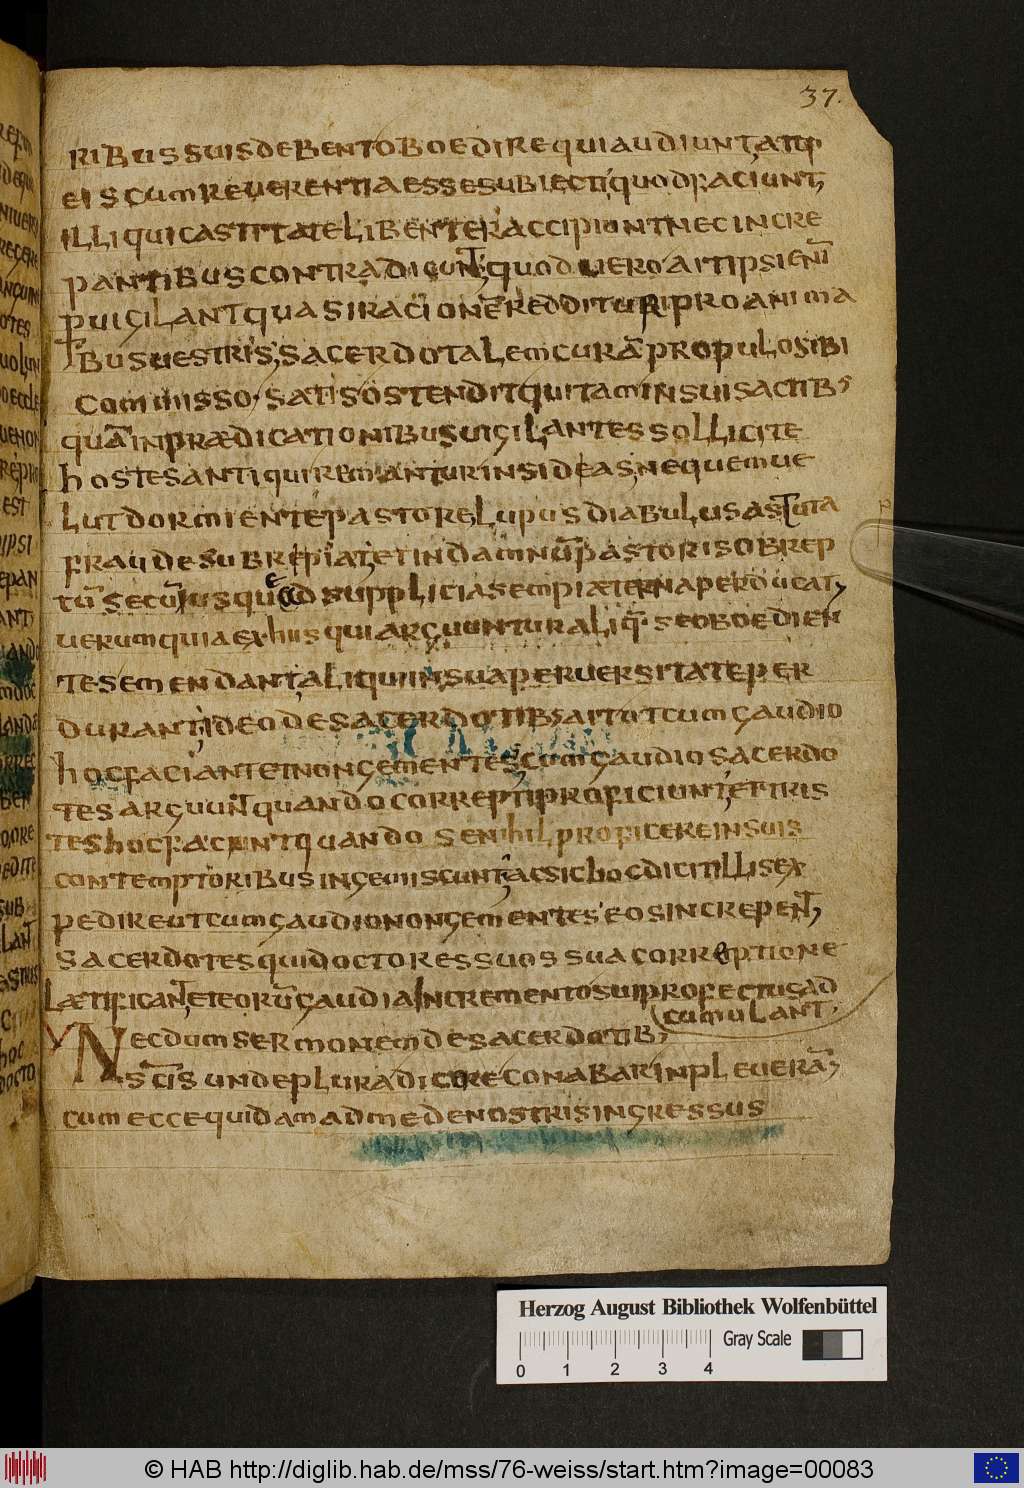 37.
RIBUS SUIS DEBENT OBOEDIRE QUI AUDIUNT, AUT
EIS CUM REVERENTIA ESSE SUBIECTI, QUOD FACIUNT,
ILLI QUI CASTITATE LIBENTER ACCIPIUNT NEC INCRE
PANTIBUS CONTRADICUNT, QUOD VERO AIT IPSI ENĪ
PVIGILANT QUASI RACIONĒ REDDITURI PRO ANIMA
BUS VESTRIS, SACERDOTALEM CURĀ PROPULO SIBI
COMMISSO. SATIS OSTENDIT QUI TAM IN SUIS ACTIB;
QUĀ IN PRÆDICATIONIBUS VIGILANTES SOLLICITE
HOSTES ANTIQUI RIMANTUR INSIDEAS, NEQUEM VE
LUT DORMIENTE PASTORE LUPUS DIABULUS ASTUTA
FRAUDE SUBREPIAT, ET IN DAMNŪ PASTORIS OBREP
TŪ SECŪ USQUE AD SUPPLICIA SEMPI ÆTERNA PERDUCAT,
VERUM QUIA EX HIIS QUI ARGUUNTUR ALIQ̄ SE OBOEDIEN
TES EMENDANT, ALIQUI IN SUA PERVERSITATE PER
DURANT, IDEO DE SACERDOTIB; AIT OT CUM GAUDIO
HOC FACIANT ET NON GEMENTES, CUM GAUDIO SACERDO
TES ARGUUNT QUANDO CORREPTI PROFICIUNT, ET TRIS
TES HOC FACIUNT QUANDO SE NIHIL PROFICERE IN SUIS
CONTEMPTORIBUS INGEMISCUNT, AC SIC HOC DICIT ILLIS EX
PEDIRE UT CUM GAUDIO NON GEMENTES EOS INCREPENT,
SACERDOTES QUI DOCTORES SUOS SUA CORREPTIONE
LÆTIFICANT, ET EORŪ GAUDIA INCREMENTO SUI PROFECTUS AD
CUMULANT.
NECDUM SERMONEM DE SACERDOTIB;
SCĪS UNDE PLURA DICERE CONABAR INPLEVERĀ,
CUM ECCE QUIDAM AD ME DE NOSTRIS INGRESSUS
Herzog August Bibliothek Wolfenbüttel
Gray Scale
0 1 2 3 4
© HAB http://diglib.hab.de/mss/76-weiss/start.htm?image=00083